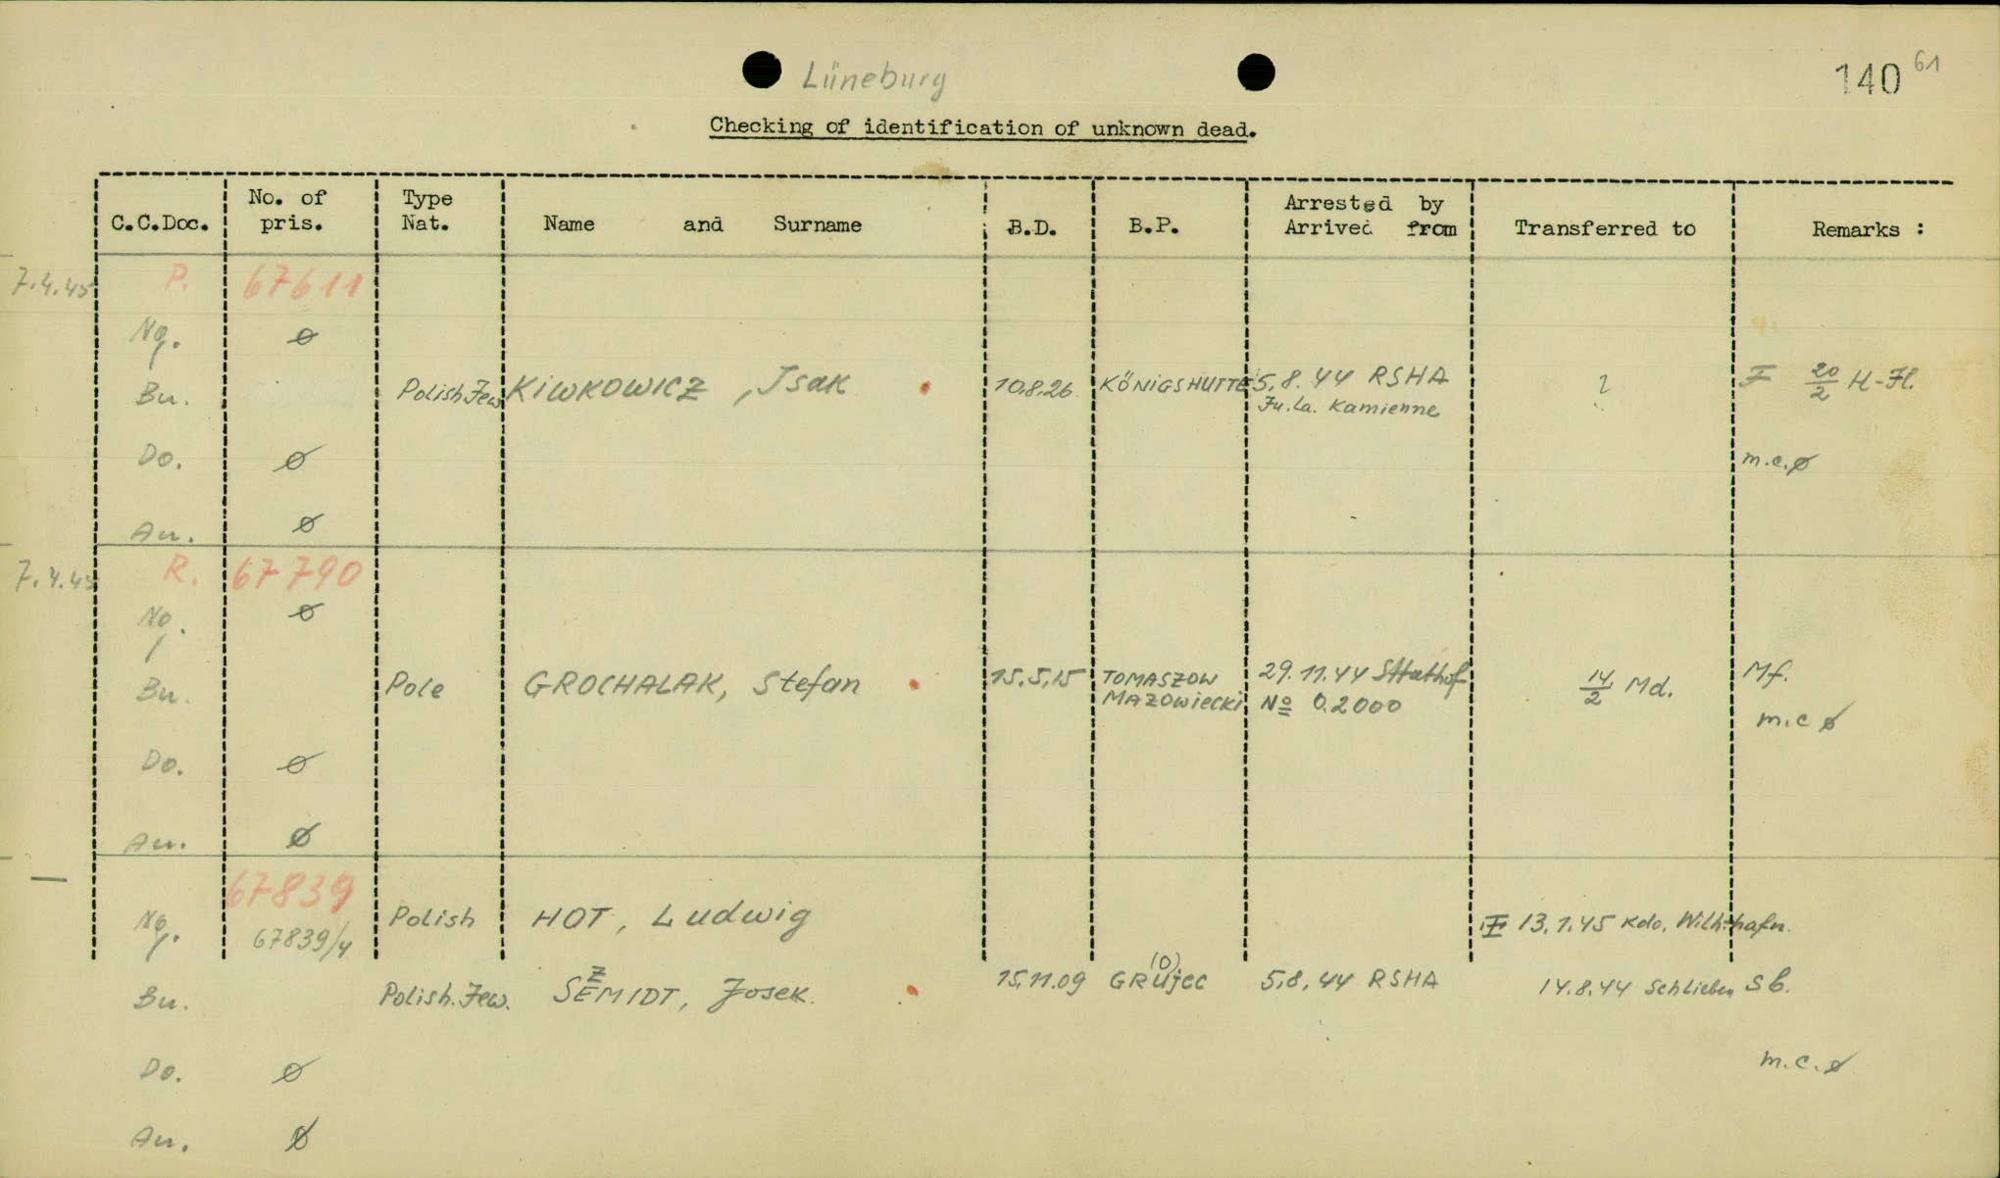 Lüneburg
140 61
Checking of identification of unknown dead.
C.C.Doc. No. of pris. Type Nat. Name and Surname B.D. B.P. Arrested by Arrived from Transferred to Remarks :
7.4.45 P. 67611
Ng. ø
Bu. Polish Jew KIWKOWICZ, Isak 10.8.26 KÖNIGSHUTTE 5.8.44 RSHA ? F 20/2 H-Fl.
Ju. La. Kamienne
Do. ø m.c.ø
Au. ø
7.4.45 R. 67790
Ng. ø
Bu. Pole GROCHALAK, Stefan 15.5.15 TOMASZOW MAZOWIECKI 29.11.44 Stutthof 14/2 Md. Mf.
No 0.2000
m.c ø
Do. ø
Au. ø
— 67839
Ng. 67839/4 Polish HOT, Ludwig 13.1.45 Kdo. Wilh.hafn.
Bu. Polish. Jew. SZEMIDT, Josek. 15.11.09 GRUJEC (O) 5.8.44 RSHA 14.8.44 Schlieben Sb.
Do. ø m.c.ø
Au. ø